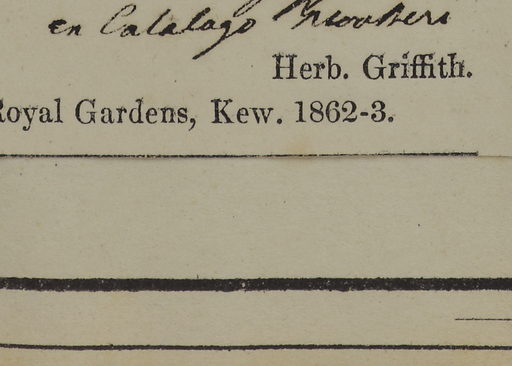 en Calalago
Herb. Griffith.
Royal Gardens, Kew. 1862-3.